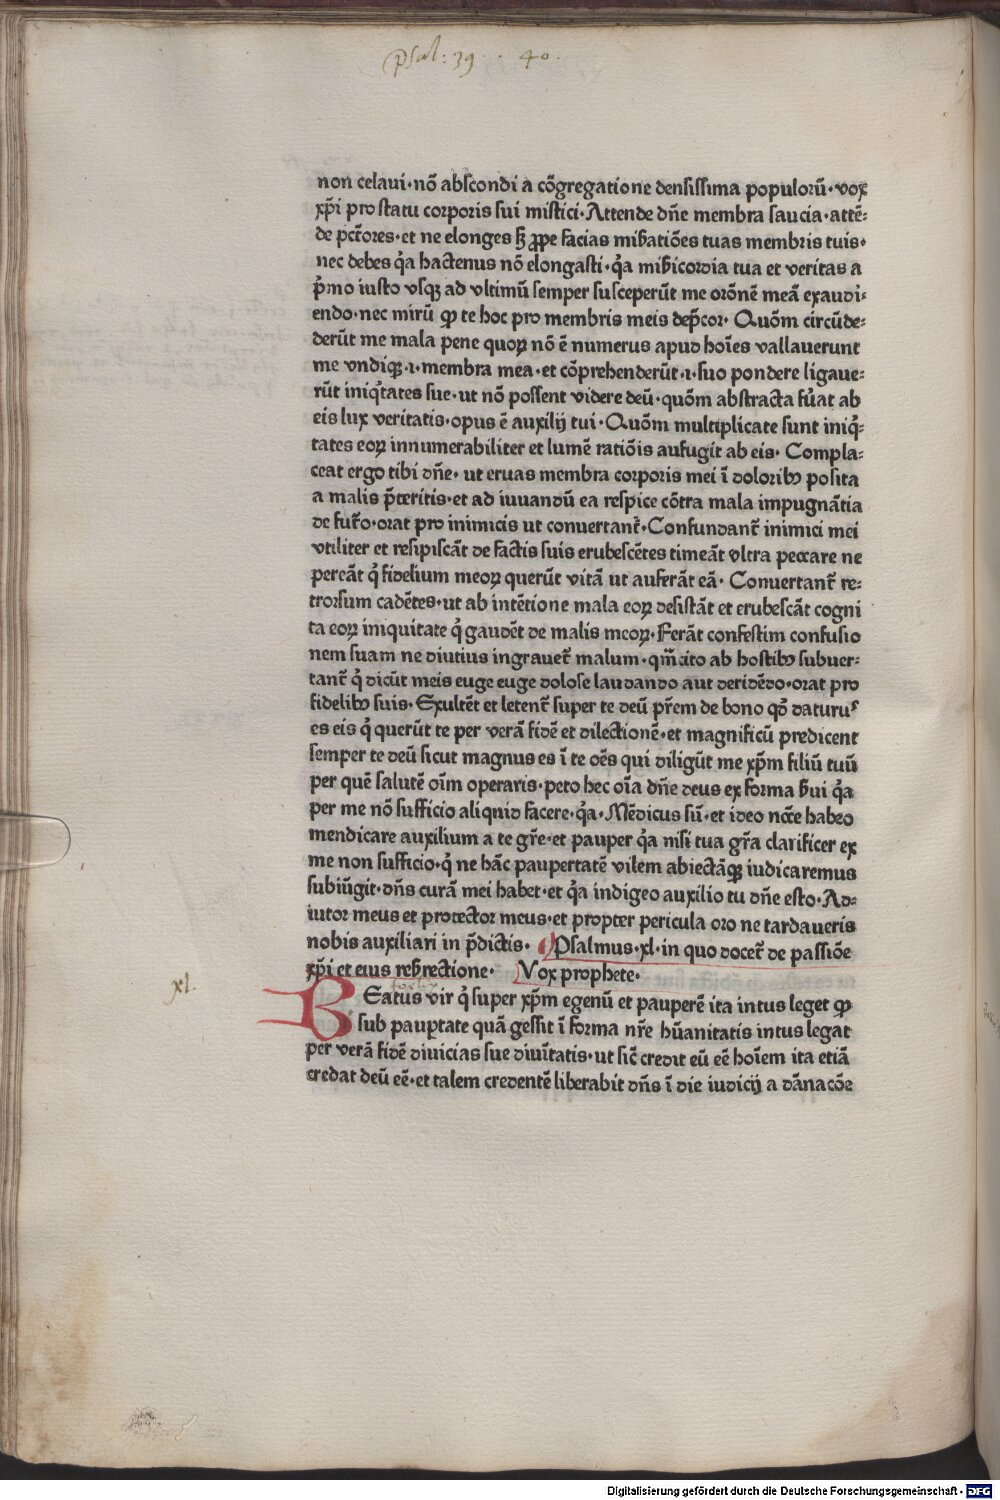 psal: 39 . 40.
non celaui·nõ abscondi a cõgregatione densissima populorũ·vox
xp̃i pro statu corporis sui mistici·Attende dñe membra saucia·attẽ⸗
de pctores·et ne elonges sꝫ ꝓpe facias mib̃atiões tuas membris tuis·
nec debes q̃a hactenus nõ elongasti·q̃a mib̃icordia tua et veritas a
p̃mo iusto vsqꝫ ad vltimũ semper susceperũt me orõnẽ meã exaudi⸗
endo·nec mirũ ꝙ te hoc pro membris meis dep̃cor· Quõm circũde⸗
derũt me mala pene quoꝝ nõ ẽ numerus apud hoĩes vallauerunt
me vndiqꝫ·.i.membra mea·et cõprehenderũt·.i.suo pondere ligaue⸗
rũt iniq̃tates sue·ut nõ possent videre deũ·quõm abstracta fũat ab
eis lux veritatis·opus ẽ auxilij tui·Quõm multiplicate sunt iniq̃⸗
tates eoꝝ innumerabiliter et lumẽ ratiõis aufugit ab eis· Compla⸗
ceat ergo tibi dñe· ut eruas membra corporis mei ĩ doloribꝫ posita
a malis p̃teritis·et ad iuuandũ ea respice cõtra mala impugnãtia
de fut̃o·orat pro inimicis ut conuertant̃·Confundant̃ inimici mei
vtiliter et resipiscãt de factis suis erubescẽtes timeãt vltra peccare ne
pereãt q̃ fidelium meoꝝ querũt vitã ut auferãt eã· Conuertant̃ re⸗
trorsum cadẽtes·ut ab intẽtione mala eoꝝ desistãt et erubescãt cogni
ta eoꝝ iniquitate q̃ gaudẽt de malis meoꝝ·Ferãt confestim confusio
nem suam ne diutius ingrauet̃ malum·qm̃ cito ab hostibꝫ subuer⸗
tant̃ q̃ dicũt meis euge euge dolose laudando aut deridẽdo·orat pro
fidelibꝫ suis·Exultẽt et letent̃ super te deũ pr̃em de bono qd̃ daturuˢ
es eis q̃ querũt te per verã fidẽ et dilectionẽ·et magnificũ predicent
semper te deũ sicut magnus es ĩ te oẽs qui diligũt me xp̃m filiũ tuũ
per quẽ salutẽ oĩm operaris·peto hec oĩa dñe deus ex forma b̃ui q̃a
per me nõ sufficio aliquid facere·q̃a·Mẽdicus sũ·et ideo ncc̃e habeo
mendicare auxilium a te gr̃e·et pauper q̃a nisi tua gr̃a clarificer ex
me non sufficio·q̃ ne hãc paupertatẽ vilem abiectãqꝫ iudicaremus
subiũgit·dñs curã mei habet·et q̃a indigeo auxilio tu dñe esto·Ad⸗
iutor meus et protector meus·et propter pericula oro ne tardaueris
nobis auxiliari in p̃dictis· Psalmus·xl·in quo docet̃ de passiõe
xp̃i et eius reb̃rectione· Vox prophete·
xl.
foelix
BEatus vir q̃ super xp̃m egenũ et pauperẽ ita intus leget ꝙ
sub pauptate quã gessit ĩ forma nr̃e hũanitatis intus legat
per verã fidẽ diuicias sue diuĩtatis·ut sic̃ credit eũ eẽ hoĩem ita etiã
credat deũ eẽ·et talem credentẽ liberabit dñs ĩ die iudicij a dãnacõe
Digitalisierung gefördert durch die Deutsche Forschungsgemeinschaft · DFG